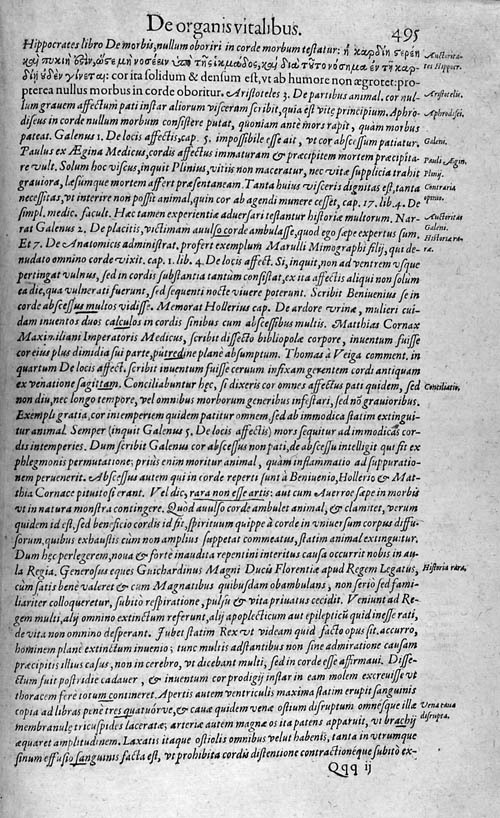 De organis vitalibus.
495
Hippocrates libro De morbis, nullum oboriri in corde morbum testatur: ἡ καρδίη στερεή
καὶ πυκινὴ
γίνεται: cor ita solidum & densum est, vt ab humore non ægrotet: pro-
pterea nullus morbus in corde oboritur. Aristoteles 3. De partibus animal. cor nul-
lum grauem affectum pati instar aliorum viscerum scribit, quia est vitę principium. Aphro-
diseus in corde nullum morbum consistere putat, quoniam ante mors rapit, quàm morbus
pateat. Galenus 1. De locis affectis, cap. 5. impossibile esse ait, vt cor abscessum patiatur.
Paulus ex Ægina Medicus, cordis affectus immaturam & præcipitem mortem præcipita-
re vult. Solum hoc viscus, inquit Plinius, vitiis non maceratur, nec vitæ supplicia trahit
grauiora, læsumque mortem affert præsentaneam. Tanta huius visceris dignitas est, tanta
necessitas, vt interire non possit animal, quin cor ab agendi munere cesset, cap. 17. lib. 4. De
simpl. medic. facult. Hæc tamen experientiæ aduersari testantur historiæ multorum. Nar-
rat Galenus 2. De placitis, victimam auulso corde ambulasse, quod ego sæpe expertus sum.
Et 7. De Anatomicis administrat, profert exemplum Marulli Mimographi filij, qui de-
nudato omnino corde vixit. cap. 1. lib. 4. De locis affect. Si, inquit, non ad ventrem vsque
pertingat vulnus, sed in cordis substantia tantum consistat, ex ita affectis aliqui non solum
ea die, qua vulnerati fuerunt, sed sequenti nocte viuere poterunt. Scribit Beniuenius se in
corde abscessus multos vidisse. Memorat Hollerius cap. De ardore vrinæ, mulieri cui-
dam inuentos duos calculos in cordis sinibus cum abscessibus multis. Matthias Cornax
Maximiliani Imperatoris Medicus, scribit dissecto bibliopolæ corpore, inuentum fuisse
cor eius plus dimidia sui parte, putredine planè absumptum. Thomas à Veiga comment. in
quartum De locis affect. scribit inuentum fuisse ceruum infixam gerentem cordi antiquam
ex venatione sagittam. Conciliabuntur hęc, si dixeris cor omnes affectus pati quidem, sed
non diu, nec longo tempore, vel omnibus morborum generibus infestari, sed nõ grauioribus.
Exempli gratia, cor intemperiem quidem patitur omnem, sed ab immodica statim extingui-
tur animal. Semper (inquit Galenus 5. De locis affectis) mors sequitur ad immodicas cor-
dis intemperies. Dum scribit Galenus cor abscessus non pati, de abscessu intelligit qui fit ex
phlegmonis permutatione; priùs enim moritur animal, quàm inflammatio ad suppuratio-
nem peruenerit. Abscessus autem qui in corde reperti sunt à Beniuenio, Hollerio & Mat-
thia Cornace pituitosi erant. Vel dic, rara non esse artis: aut cum Auerroe sæpe in morbis
vt in natura monstra contingere. Quòd auulso corde ambulet animal, & clamitet, verum
quidem id est, sed beneficio cordis id fit, spirituum quippe à corde in vniuersum corpus diffu-
sorum, quibus exhaustis cùm non amplius suppetat commeatus, statim animal extinguitur.
Dum hęc perlegerem, noua & fortè inaudita repentini interitus causa occurrit nobis in au-
la Regia. Generosus eques Guichardinus Magni Ducis Florentiæ apud Regem Legatus,
cùm satis benè valeret & cum Magnatibus quibusdam obambulans, non seriò sed fami-
liariter colloqueretur, subitò respiratione, pulsu & vita priuatus cecidit. Veniunt ad Re-
gem multi, alij omnino extinctum referunt, alij apoplecticum aut epilepticũ quid inesse rati,
de vita non omnino desperant. Iubet statim Rex vt videam quid facto opus sit, accurro,
hominem planè extinctum inuenio; tunc multis adstantibus non sine admiratione causam
præcipitis illius casus, non in cerebro, vt dicebant multi, sed in corde esse affirmaui. Disse-
ctum fuit postridie cadauer, & inuentum cor prodigij instar in eam molem excreuisse vt
thoracem fere totum contineret. Apertis autem ventriculis maxima statim erupit sanguinis
copia ad libras penè tres quatuórve, & cauæ quidem venæ ostium disruptum omnesque illæ
membranulę tricuspides laceratæ; arteriæ autem magnæ os ita patens apparuit, vt brachij
æquaret amplitudinem. Laxatis itaque ostiolis omnibus velut habenis, tanta in vtrumque
sinum effusio sanguinis facta est, vt prohibita cordis distentione contractionéque subitò ex-
Qqq ij
Auctorita-
tes Hippocr.
Aristotelis.
Aphrodisei.
Galeni.
Pauli Ægin.
Plinij.
Contraria
opinio.
Auctoritas
Galeni.
Historia ra-
ra.
Conciliatio.
Historia rara.
Vena caua
disrupta.